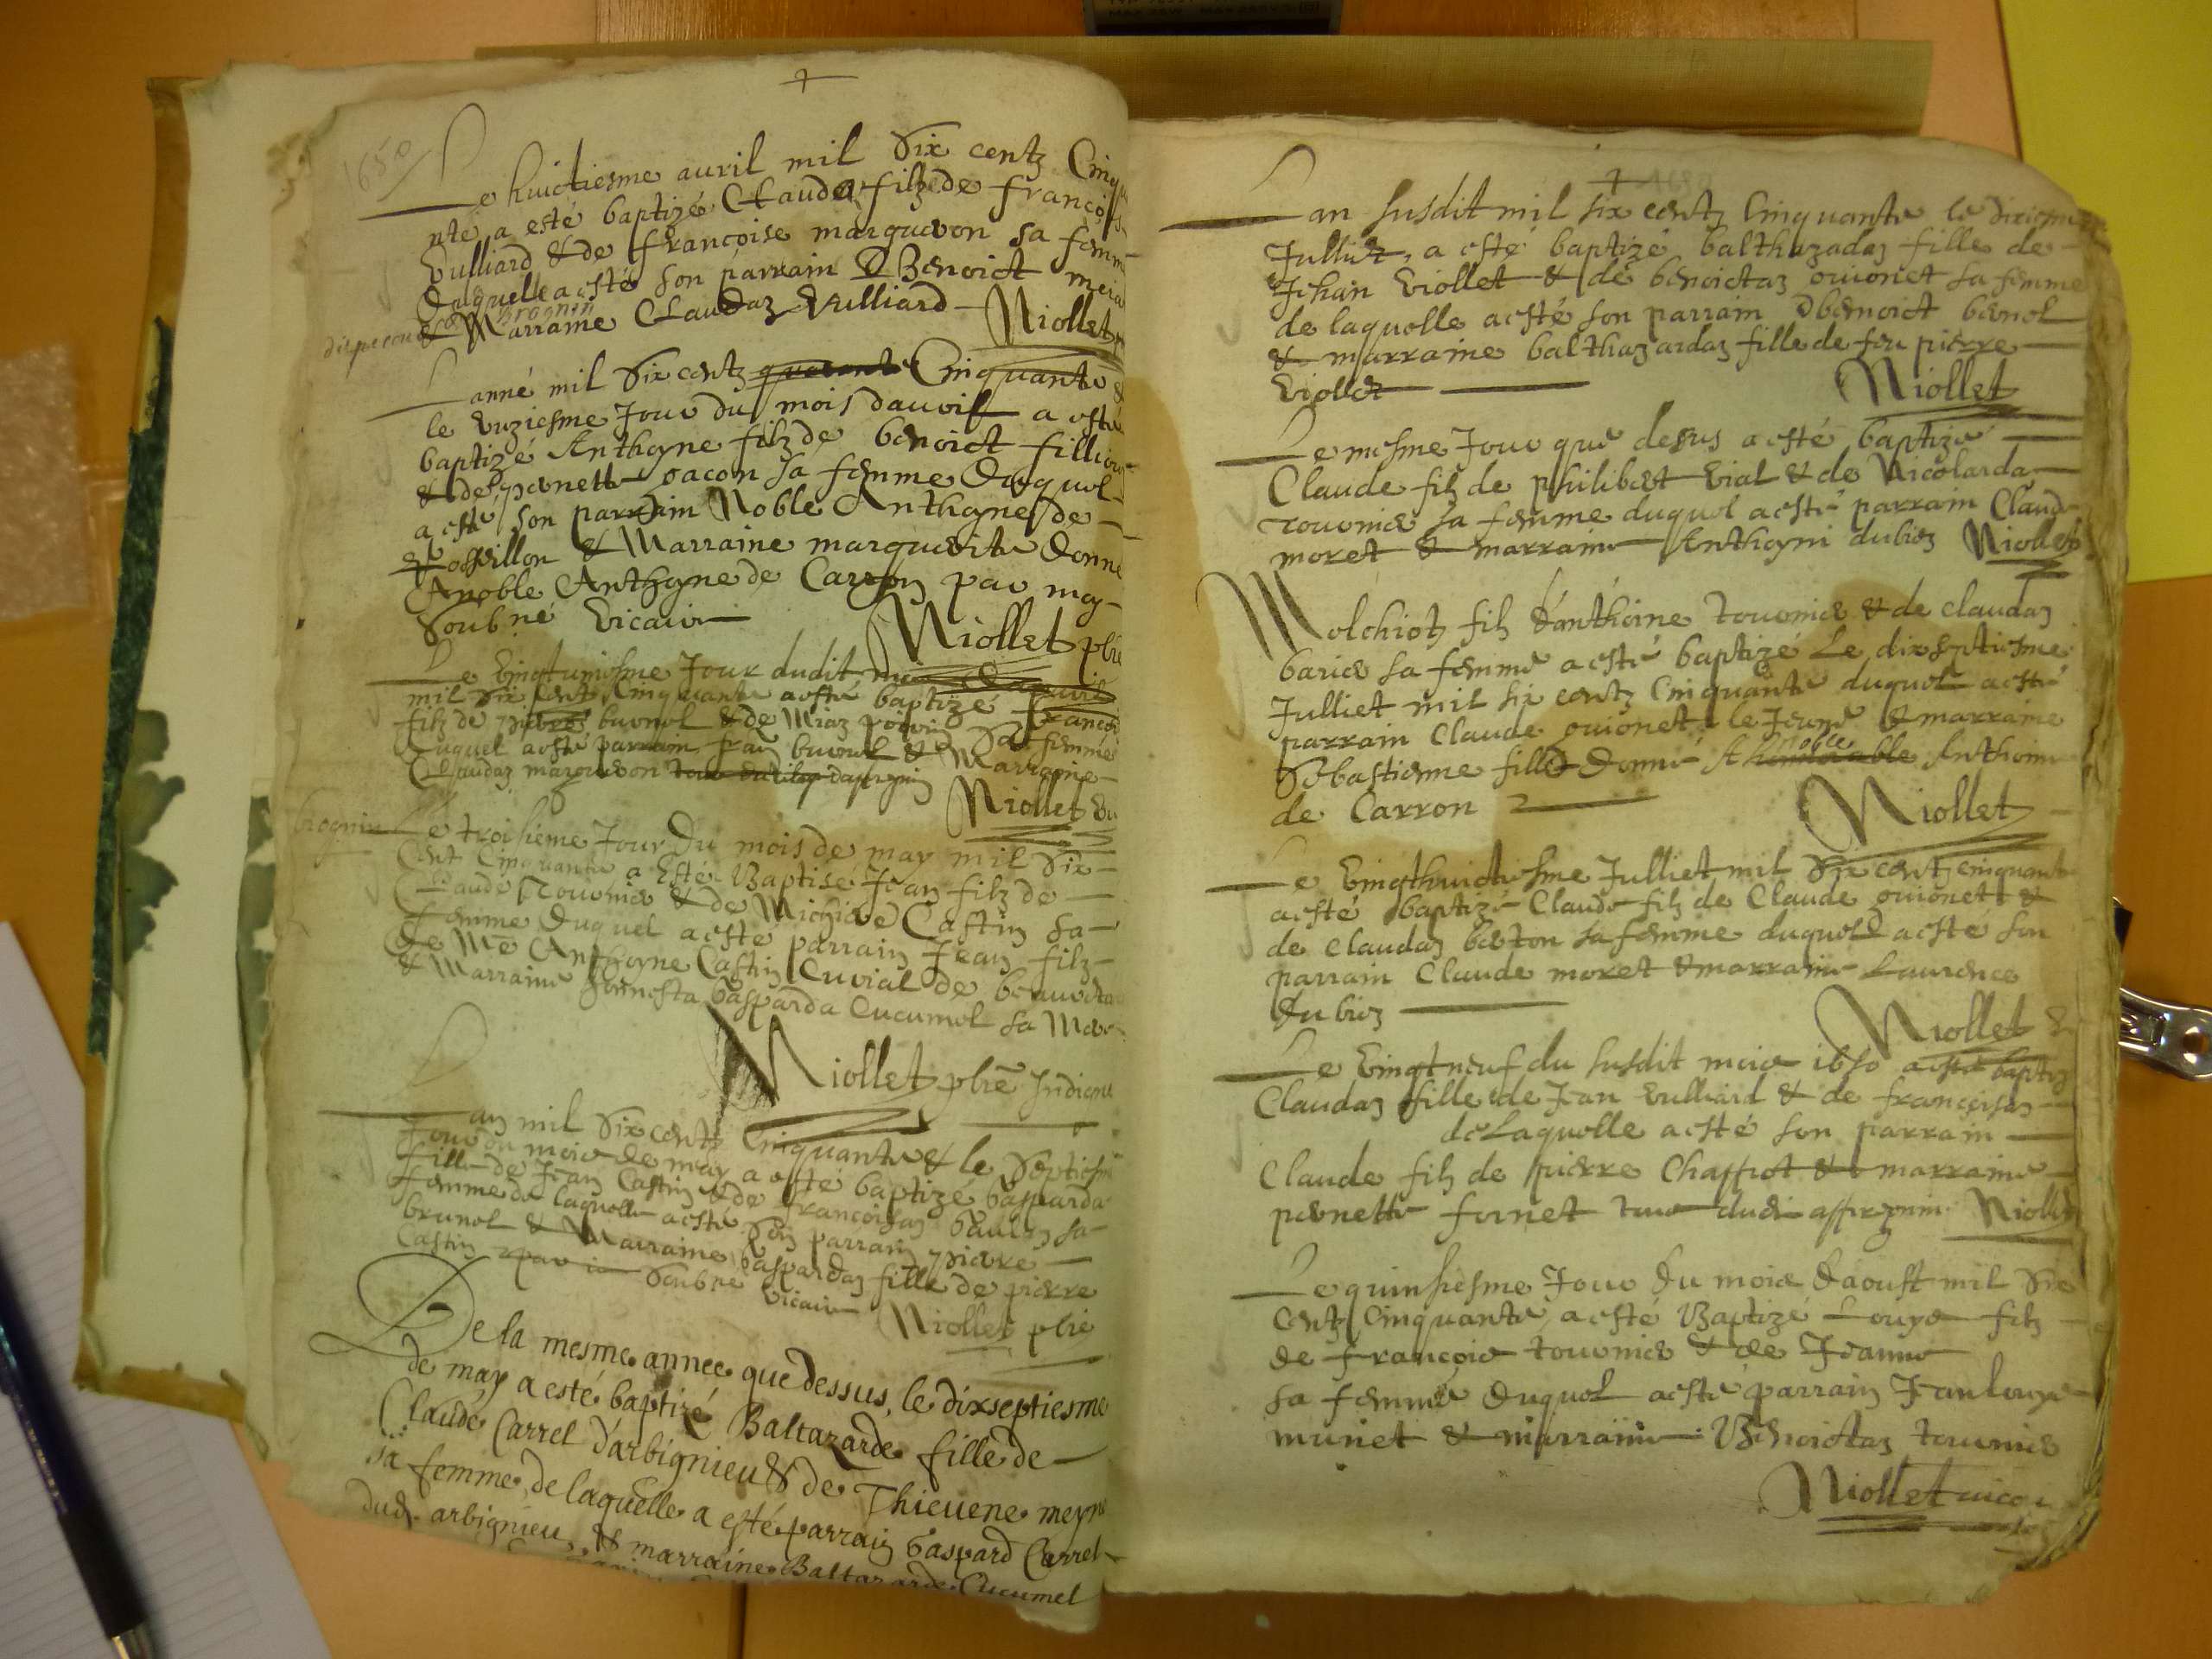 1650
Le huictiesme auril mil Six centz Cinqu
nte a esté baptizé Claude filz de francois
Vulliard & de francoise margueron sa femme
Duquell a esté son parrain D Benoict
& Marraine Claudaz Vulliard Niollet
Lanné mil Six centz quarante Cinquante &
le vnziesme Jour du mois dauril a esté
baptizé Anthoyne filz de benoict fillion
& de pernette oacon sa femme Duquel
a esté son parrain Noble Anthoyne de
& Marraine marguerite Donné
A noble Anthoyne de Carron par moy
Soubné Vicaire
Niollet pbre
Le Vingtuniesme Jour dudit mois Dapvril
mil Six cent Cinquante a esté baptizé francois
filz de pierre burnol & de Miaz poivin Sa femme
Duquel a esté parrain fran burnol & Marraine
Claudaz margueron
Niollet
brognin Le troisieme Jour Du mois de may mil Six
Cent Cinquante a Esté Baptise Jean filz de
Claude Tournier & de Michiere Castin sa
femme Duquel a esté parrain Jean filz
de Me Anthoyne Castin Curial de
& Marraine honnesta Gasparda Cucumel sa
Niollet pbre Indigne
Lan mil Six centz Cinquante & le Septiesme
Jour du mois de may a esté baptizé Gasparda
fille de Jean Castin & de francoisaz Gaulin sa
femme de laquelle a esté Son parrain pierre
brunol & Marraine Gaspardaz fille de pierre
Castin par Soubné Vicaire Niollet pbre
De la mesme annee que dessus, le dixseptiesme
de may a esté baptizé Baltazarde fille de
Claude Carrel d'arbignieu & de Thieuene
sa femme, de laquelle a esté parrain Gaspard Carrel
dud. arbignieu, & marraine Baltazarde Cucumel
Lan susdit mil six centz Cinquante le dixiesme
Julliet, a esté baptizé balthazadaz fille de
Jehan Viollet & de benoictaz ouionet sa femme
de laquelle a esté son parrain D benoict benol
& marraine balthazardaz fille de feu pierre
Viollet Niollet
Le mesme Jour que desus a esté baptizé
Claude filz de philibert Vial & de Nicolarda
Tournier sa femme duquel a esté parrain Claude
moret & marraine Anthoyni dubiez Niollet
Melchiotz filz d'anthoine Tournier & de Claudaz
barier sa femme a esté baptizé Le dixseptiesme
Julliet mil six centz Cinquante duquel a esté
parrain Claude ouionet le Jeune & marraine
Sebastienne fille Donné A noble honnorable Anthoine
de Carron Niollet
Le Vingthuictiesme Julliet mil Six centz cinquante
a esté baptizé Claude filz de Claude ouionet &
de Claudaz berton sa femme duquel a esté son
parrain Claude moret & marraine Laurence
Dubiez
Niollet
Le Vingtneuf du susdit mois 1650 a esté baptiz
Claudaz fille de Jean Vulliard & de francoisaz
de Laquelle a esté son parrain
Claude filz de pierre Chappot & marraine
pernette fornet tous dudi Niollet
Le quinsiesme Jour Du mois Daoust mil Six
Centz Cinquante a esté Baptizé Louys filz
de francois tournier & de Jeanne
sa femme Duquel a esté parrain Jean louys
munet & marraine Benoictaz tournier
Niollet